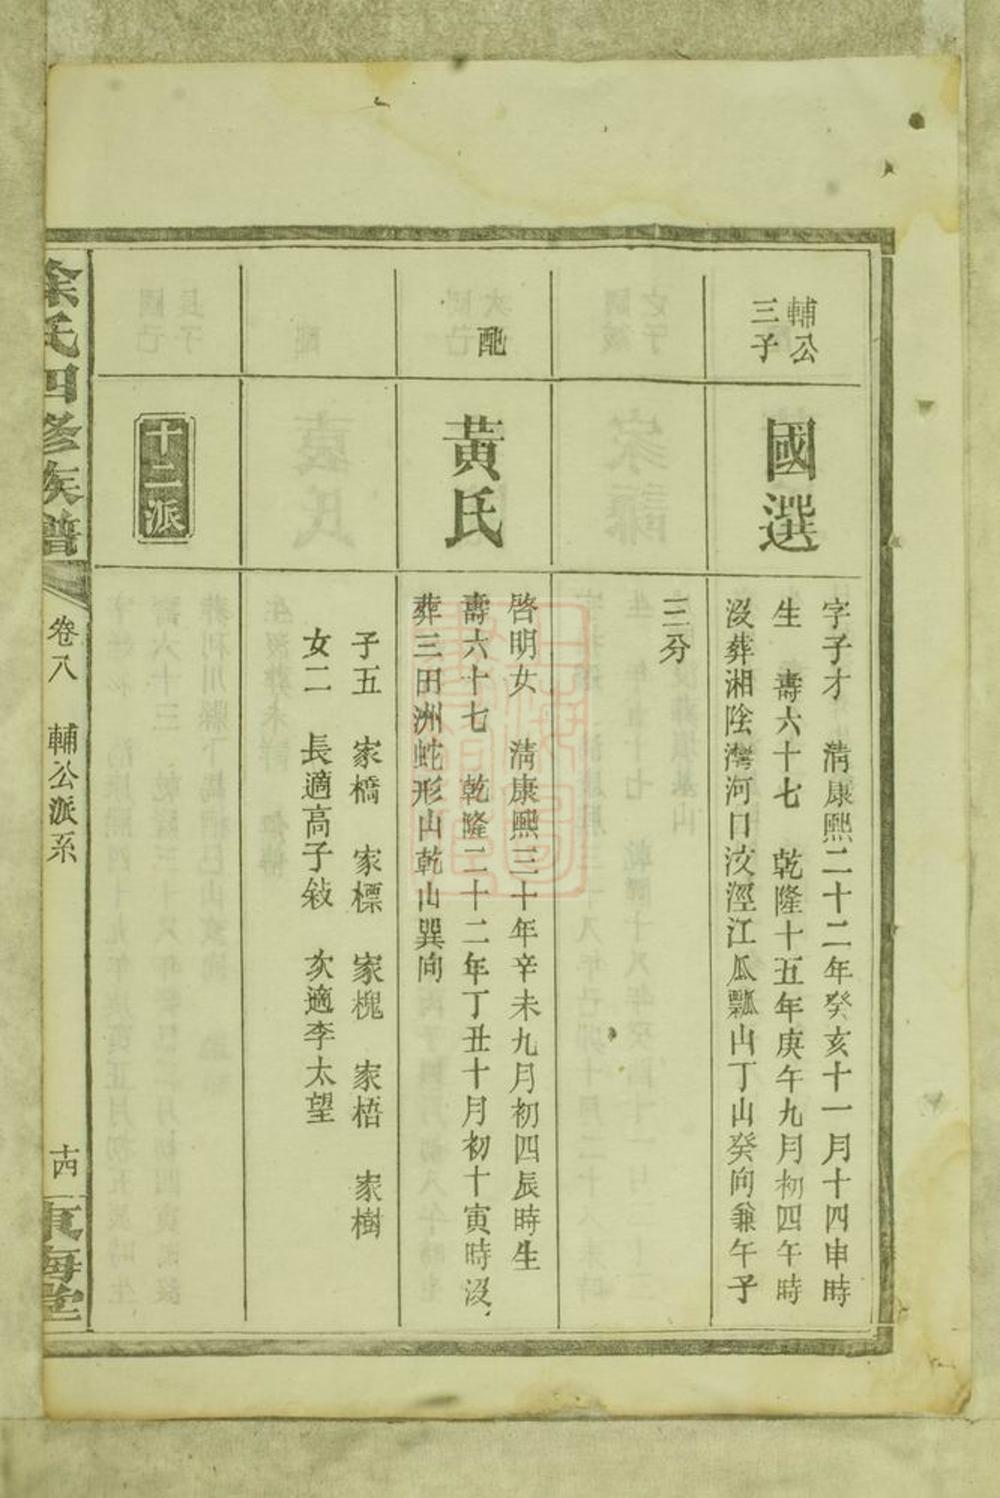 輔公
三子
國選
字子才　淸康熙二十二年癸亥十一月十四申時
生　壽六十七　乾隆十五年庚午九月初四午時
沒葬湘陰灣河口汶涇江瓜瓢山丁山癸向兼午子
三分
配
黃氏
啓明女　淸康熙三十年辛未九月初四辰時生
壽六十七　乾隆二十二年丁丑十月初十寅時沒
葬三田洲蛇形山乾山巽向
子五　家橋　家標　家槐　家梧　家樹
女二　長適高子敍　次適李太望
十二派
徐氏四修族譜
卷八　輔公派系
十四
東海堂